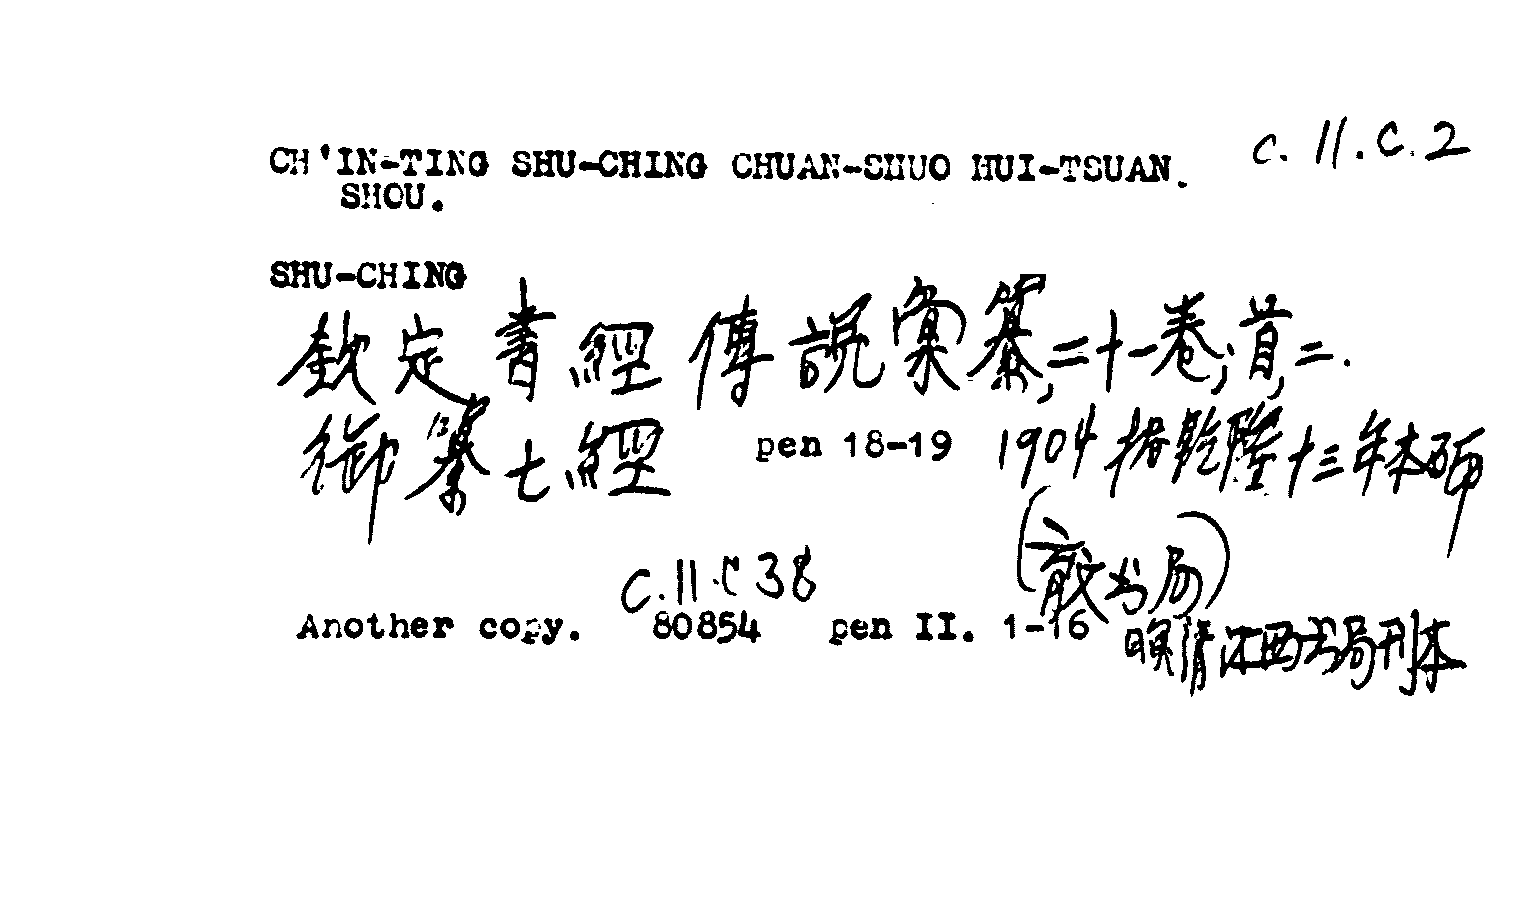 c.11.c.2
CH'IN-TING SHU-CHING CHUAN-SHUO HUI-TSUAN.
SHOU.
SHU-CHING
欽定書經傳說彙纂,二十一卷;首,二.
御纂七經 pen 18-19 1904 据乾隆十三年本
(書局)
c.11.c 38
Another copy. 80854 pen II. 1-16
晚清江西书局刊本